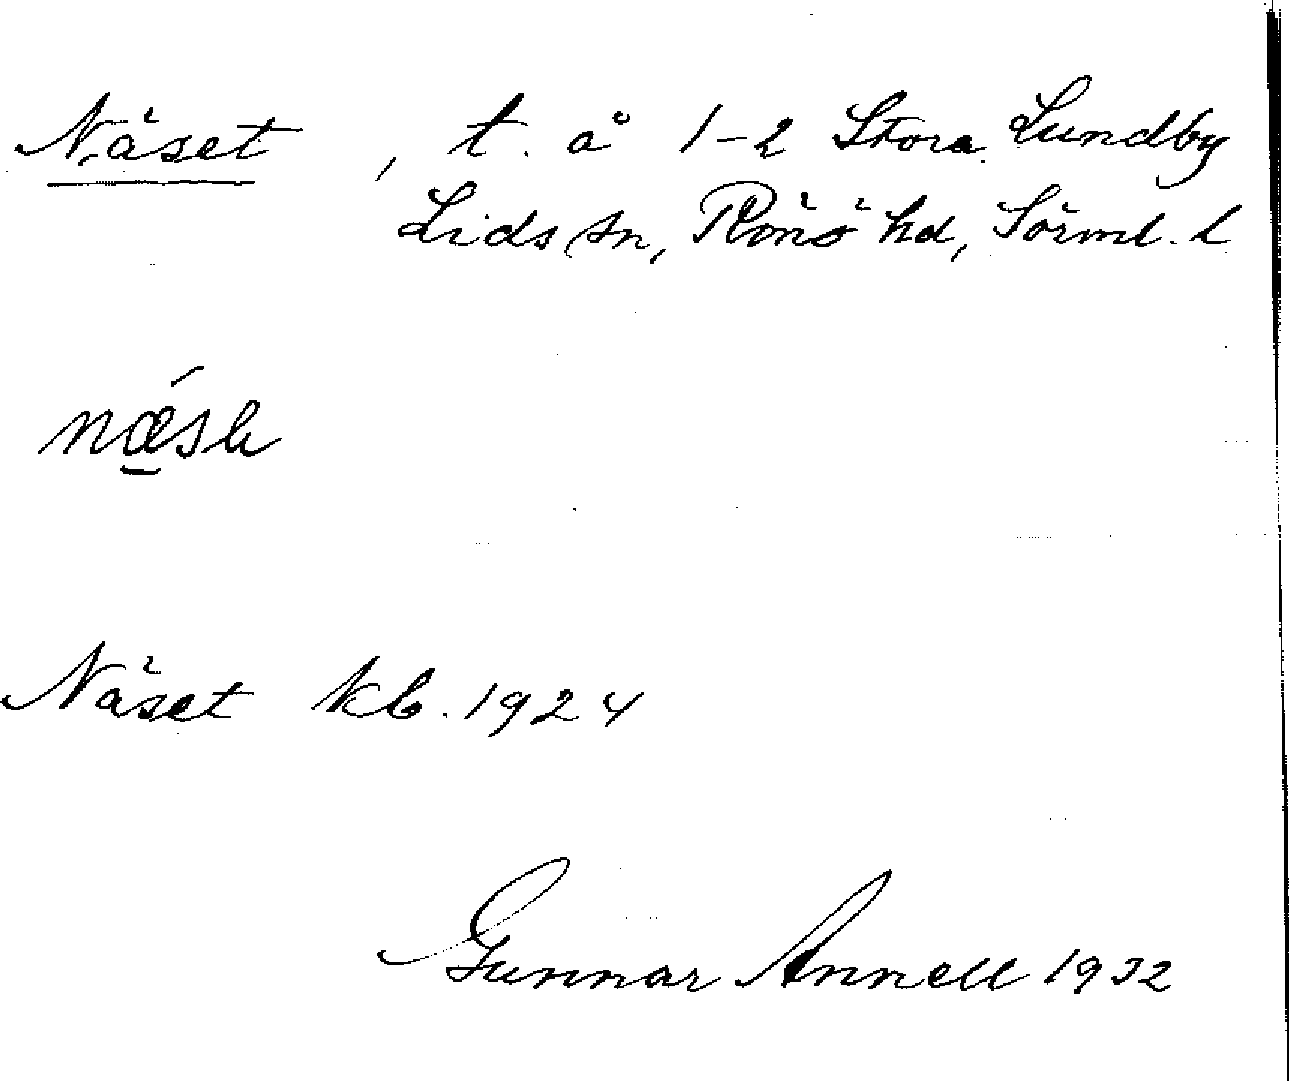 Näset, t. å 1-2 Stora Lundby
Lids sn, Rönö hd, Sörml. l
Näset kb. 1924
Gunnar Annell 1932